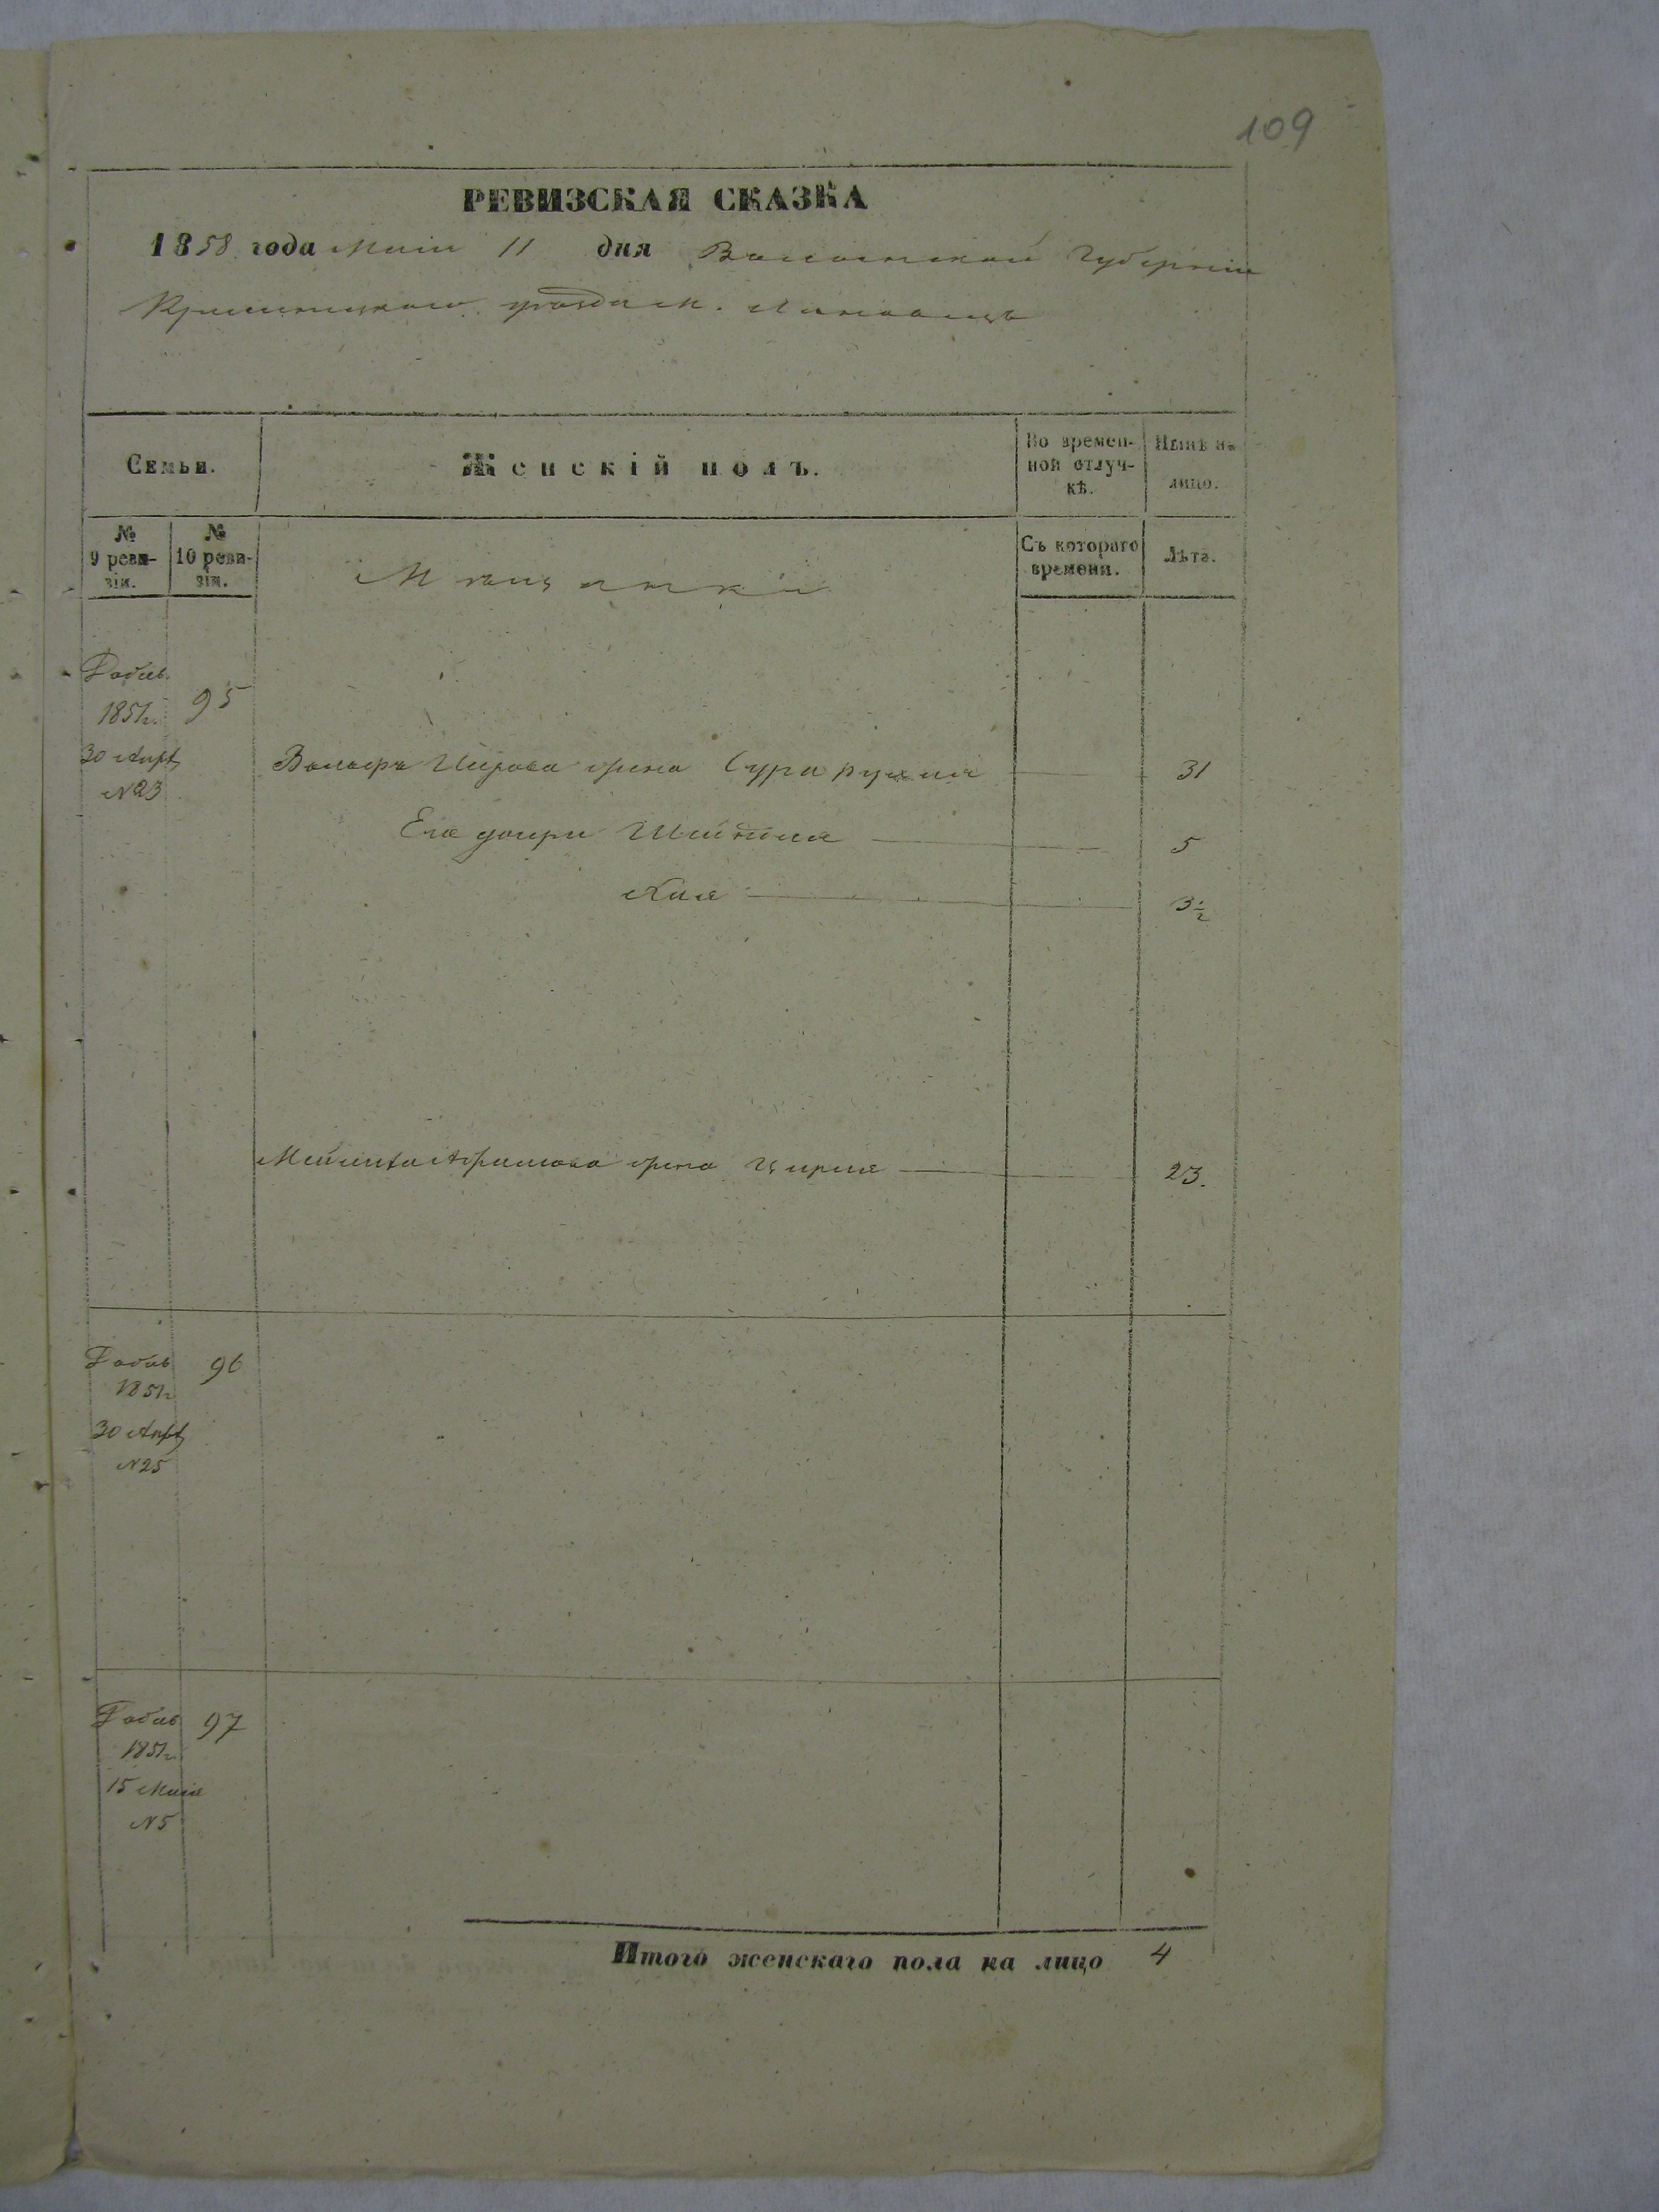 109
РЕВИЗСКАЯ СКАЗКА
1858 года Маія 11 дня Волынской Губерніи
Кременецкаго уѣзда м. Лановецъ
Семьи.
Женскій полъ.
Во времен-
ной отлуч-
кѣ.
Нынѣ на
лицо.
№
9 реви-
зіи.
№
10 реви-
зіи.
Мѣщанки
Съ котораго
времени.
Лѣта.
Добав.
1851г. 95
30 Апр
N23
Вольфа жена Сура Рухля 31
Его дочери Шейндля 5
Хая 3½
жена Цирля 23.
Добав 96
1851г
30 Апр
N25
Добав 97
1851г.
15 Мая
N5
Итого женскаго пола на лицо 4